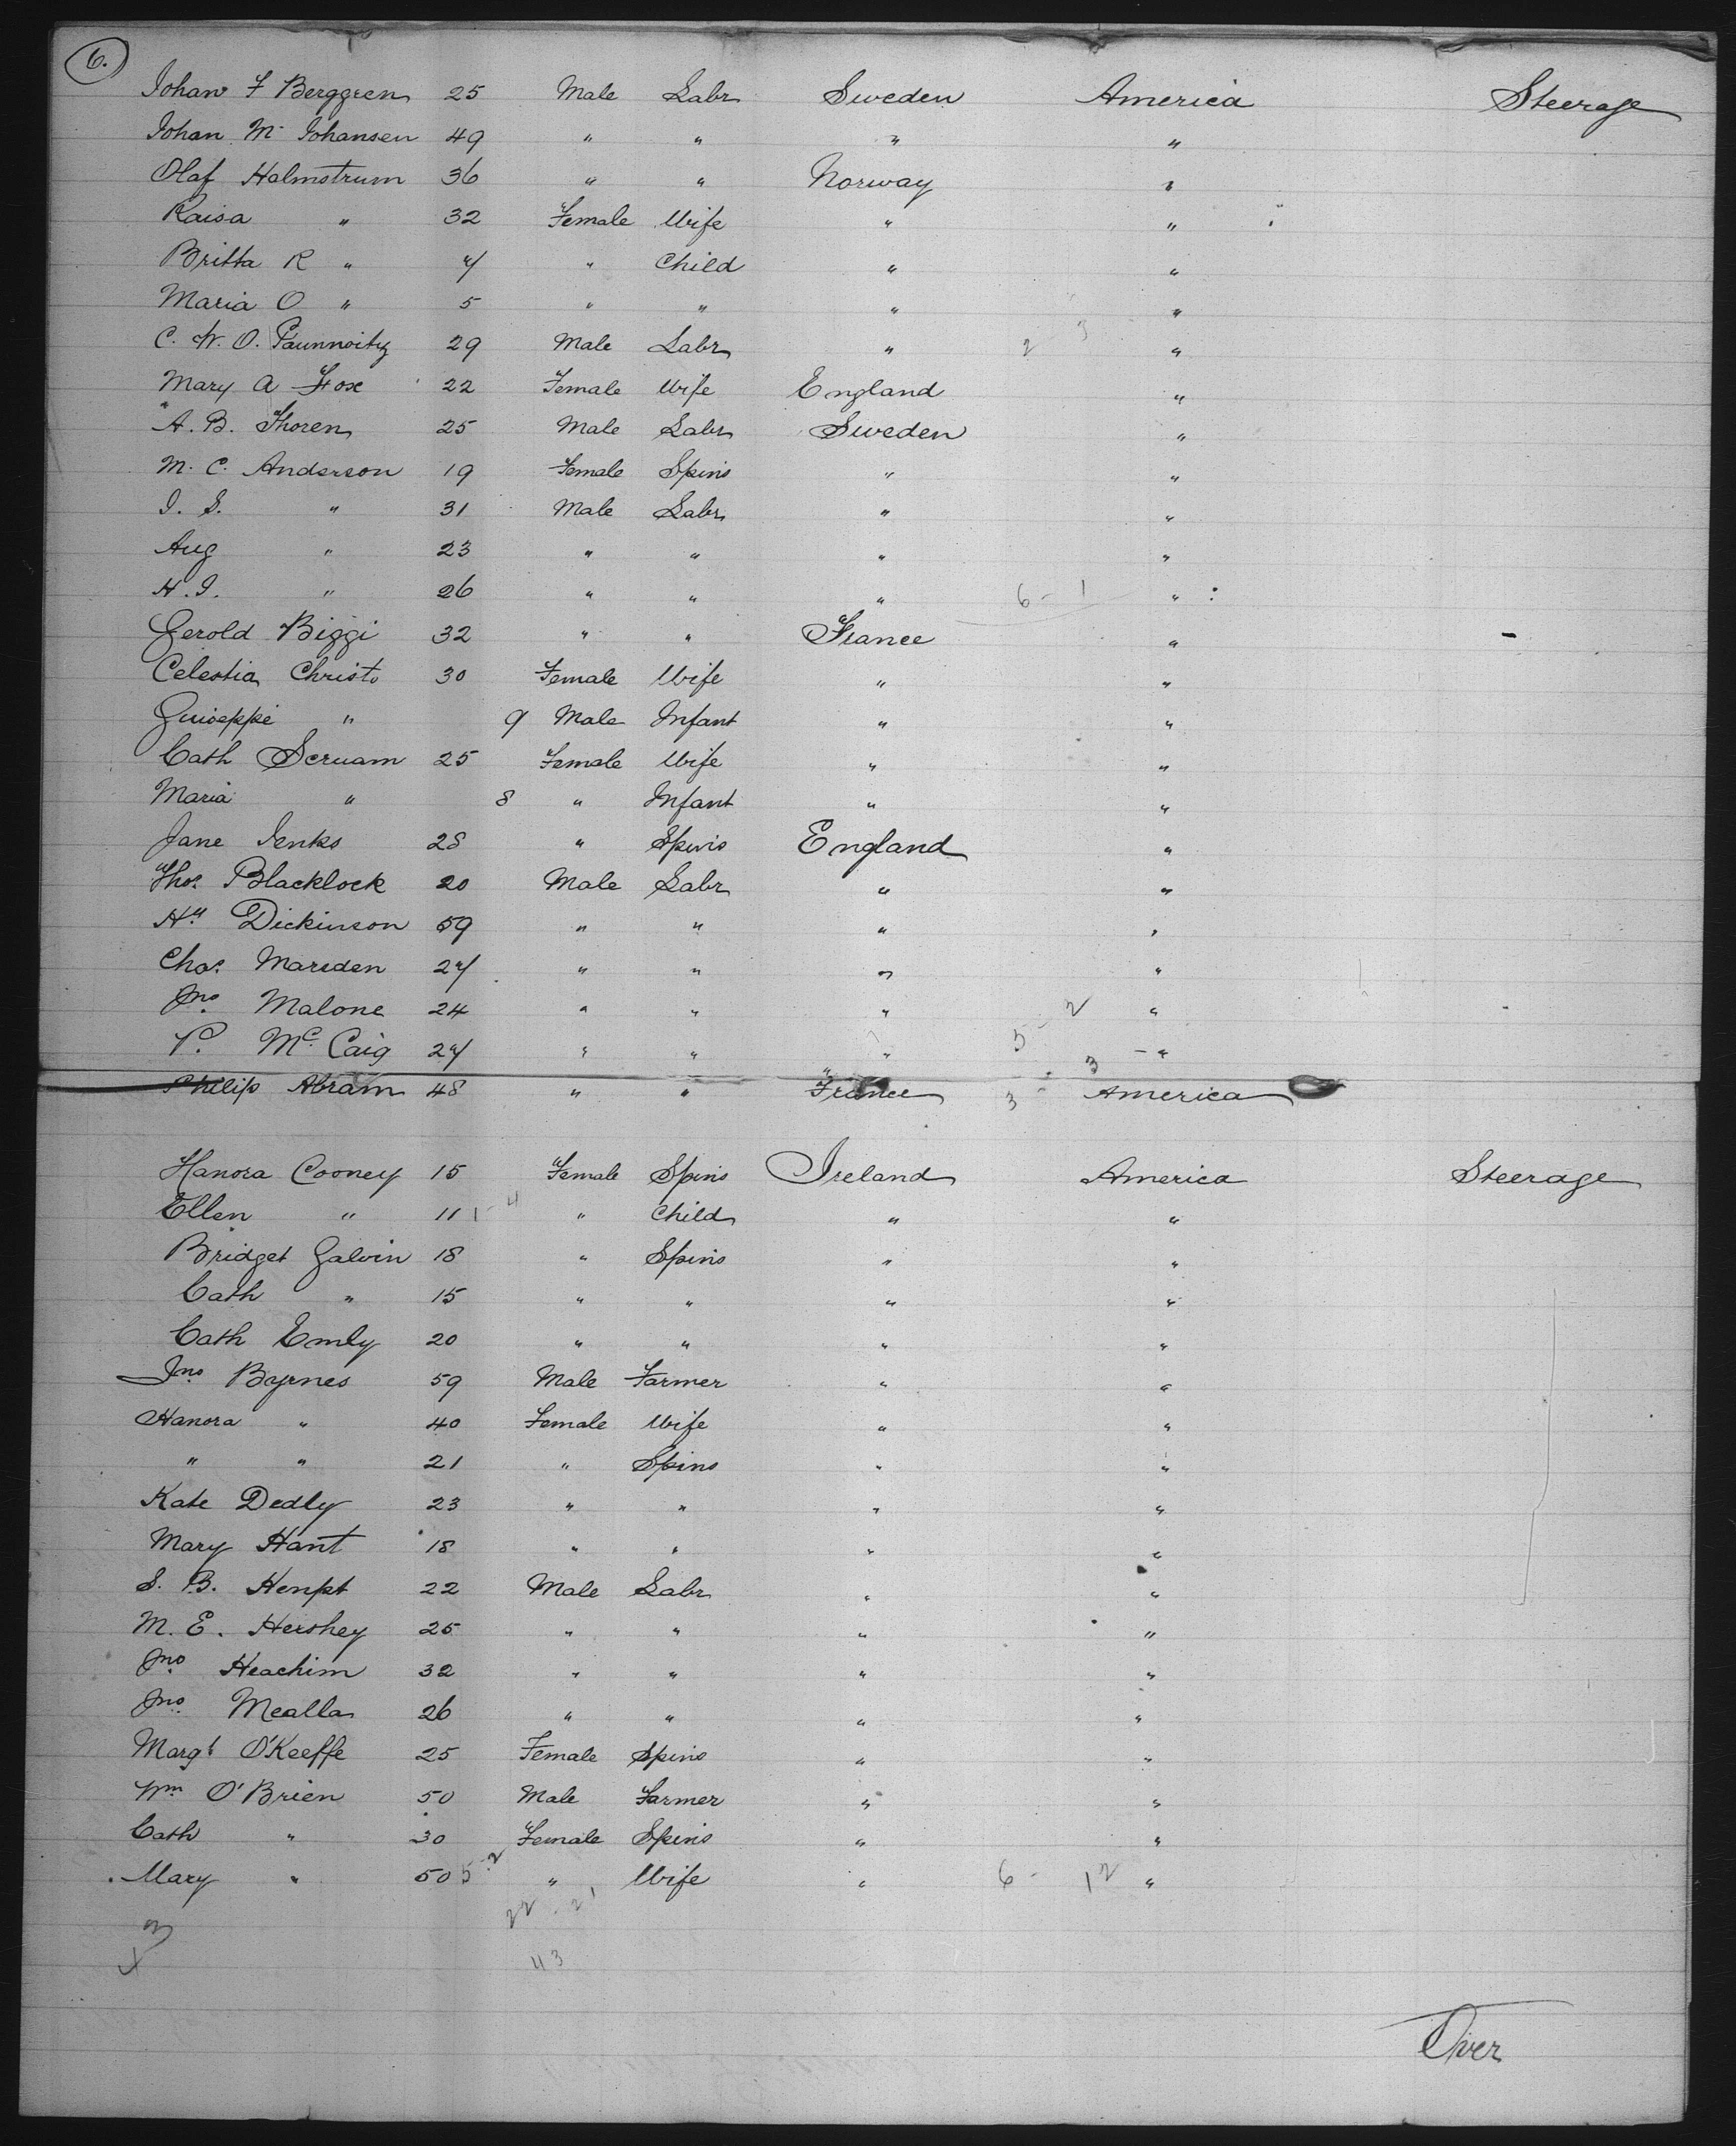 6.
Johan F Berggren 25 Male Labr Sweden America Steerage
Johan M Johansen 49 " " " "
Olaf Halmstrum 36 " " Norway "
Kaisa " 32 Female Wife " "
Britta K " 4 " Child " "
Maria O " 5 " " " "
C. W. O. 29 Male Labr " "
Mary A Fox 22 Female Wife England "
A. B. Thoren 25 Male Labr Sweden "
M. C. Anderson 19 Female Spins " "
J. S. " 31 Male Labr " "
Aug " 23 " " " "
H. J. " 26 " " " 6 - 1 "
Gerold Biggi 32 " " France "
Celestia Christo 30 Female Wife " "
Guiseppi " 9 Male Infant " "
Cath Scruam 25 Female Wife " "
Maria " 8 " Infant " "
Jane Jenks 28 " Spins England "
Thos Blacklock 20 Male Labr " "
Hy Dickinson 59 " " " "
Chas Marsden 24 " " " "
Jno Malone 24 " " " "
P. McCaig 24 " " " "
Philip Abram 48 " " France America
Hanora Cooney 15 Female Spins Ireland America Steerage
Ellen " 11 " Child " "
Bridget Galvin 18 " Spins " "
Cath " 15 " " " "
Cath Emly 20 " " " "
Jno Byrnes 59 Male Farmer " "
Hanora " 40 Female Wife " "
" " 21 " Spins " "
Kate Dedly 23 " " " "
Mary Hant 18 " " " "
S. B. Henpt 22 Male Labr " "
M. E. Hershey 25 " " " "
Jno Heachim 32 " " " "
Jno Mealla 26 " " " "
Margt O'Keeffe 25 Female Spins " "
Wm O'Brien 50 Male Farmer " "
Cath " 30 Female Spins " "
Mary " 50 " Wife " 6 - 12 "
22 . 21
43
Over